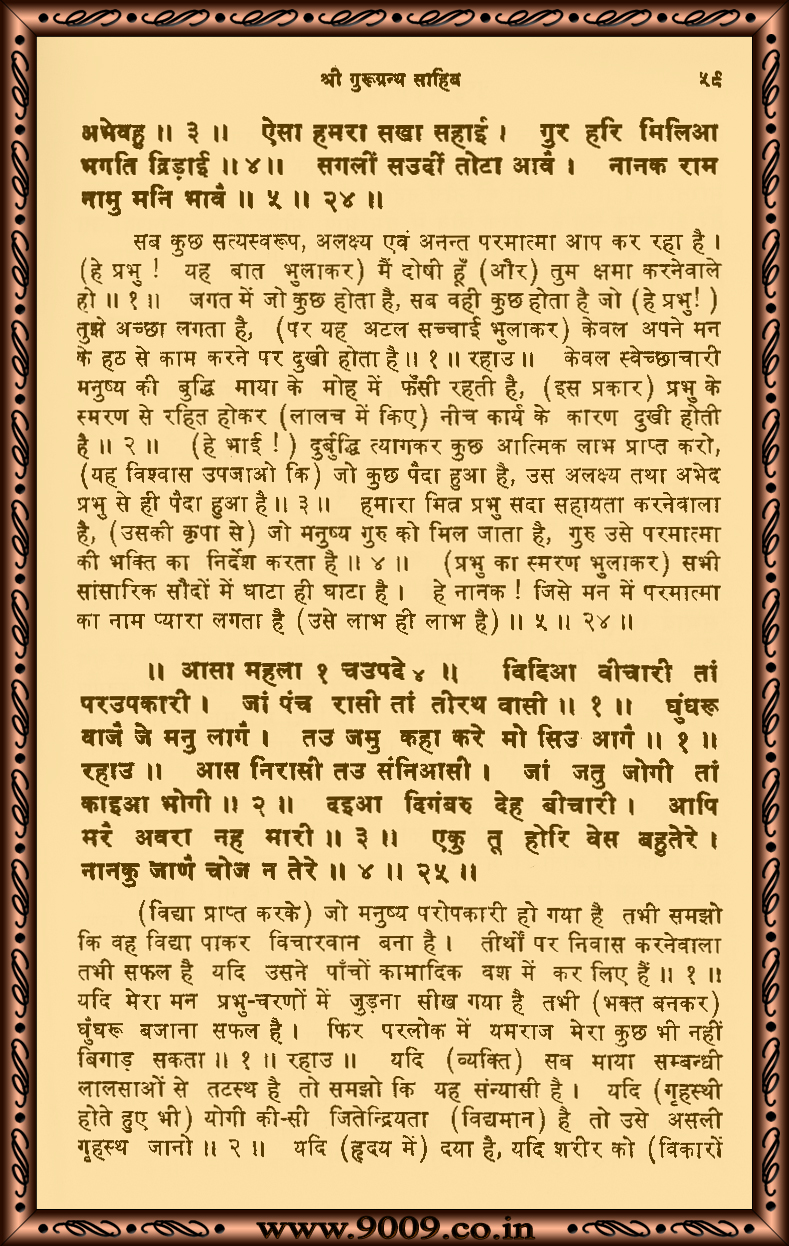 श्री गुरूग्रन्थ साहिब ५९
अभेवहु ॥ ३ ॥ ऐसा हमरा सखा सहाई । गुर हरि मिलिआ
भगति द्रिड़ाई ॥ ४ ॥ सगलीं सउदीं तोटा आवै । नानक राम
नामु मनि भावै ॥ ५ ॥ २४ ॥
सब कुछ सत्यस्वरूप, अलक्ष्य एवं अनन्त परमात्मा आप कर रहा है ।
(हे प्रभु ! यह बात भुलाकर) मैं दोषी हूँ (और) तुम क्षमा करनेवाले
हो ॥ १ ॥ जगत में जो कुछ होता है, सब वही कुछ होता है जो (हे प्रभु! )
तुझे अच्छा लगता है, (पर यह अटल सच्चाई भुलाकर) केवल अपने मन
के हठ से काम करने पर दुखी होता है ॥ १ ॥ रहाउ ॥ केवल स्वेच्छाचारी
मनुष्य की बुद्धि माया के मोह में फँसी रहती है, (इस प्रकार) प्रभु के
स्मरण से रहित होकर (लालच में किए) नीच कार्य के कारण दुखी होती
है ॥ २ ॥ (हे भाई ! ) दुर्बुद्धि त्यागकर कुछ आत्मिक लाभ प्राप्त करो,
(यह विश्वास उपजाओ कि) जो कुछ पैदा हुआ है, उस अलक्ष्य तथा अभेद
प्रभु से ही पैदा हुआ है ॥ ३ ॥ हमारा मित्र प्रभु सदा सहायता करनेवाला
है, (उसकी कृपा से) जो मनुष्य गुरु को मिल जाता है, गुरु उसे परमात्मा
की भक्ति का निर्देश करता है ॥ ४ ॥ (प्रभु का स्मरण भुलाकर) सभी
सांसारिक सौदों में घाटा ही घाटा है । हे नानक ! जिसे मन में परमात्मा
का नाम प्यारा लगता है (उसे लाभ ही लाभ है) ॥ ५ ॥ २४ ॥
॥ आसा महला १ चउपदे ४ ॥ विदिआ वीचारी तां
परउपकारी । जां पंच रासी तां तीरथ वासी ॥ १ ॥ घुंघरू
वाजै जे मनु लागै । तउ जमु कहा करे मो सिउ आगै ॥ १ ॥
रहाउ ॥ आस निरासी तउ संनिआसी । जां जतु जोगी तां
काइआ भोगी ॥ २ ॥ दइआ दिगंबरु देह बीचारी । आपि
मरै अवरा नह मारी ॥ ३ ॥ एकु तू होरि वेस बहुतेरे ।
नानकु जाणै चोज न तेरे ॥ ४ ॥ २५ ॥
(विद्या प्राप्त करके) जो मनुष्य परोपकारी हो गया है तभी समझो
कि वह विद्या पाकर विचारवान बना है । तीर्थों पर निवास करनेवाला
तभी सफल है यदि उसने पाँचों कामादिक वश में कर लिए हैं ॥ १ ॥
यदि मेरा मन प्रभु-चरणों में जुड़ना सीख गया है तभी (भक्त बनकर)
घुँघरू बजाना सफल है । फिर परलोक में यमराज मेरा कुछ भी नहीं
बिगाड़ सकता ॥ १ ॥ रहाउ ॥ यदि (व्यक्ति) सब माया सम्बन्धी
लालसाओं से तटस्थ है तो समझो कि यह संन्यासी है । यदि (गृहस्थी
होते हुए भी) योगी की-सी जितेन्द्रियता (विद्यमान) है तो उसे असली
गृहस्थ जानो ॥ २ ॥ यदि (हृदय में) दया है, यदि शरीर को (विकारों
www.9009.co.in